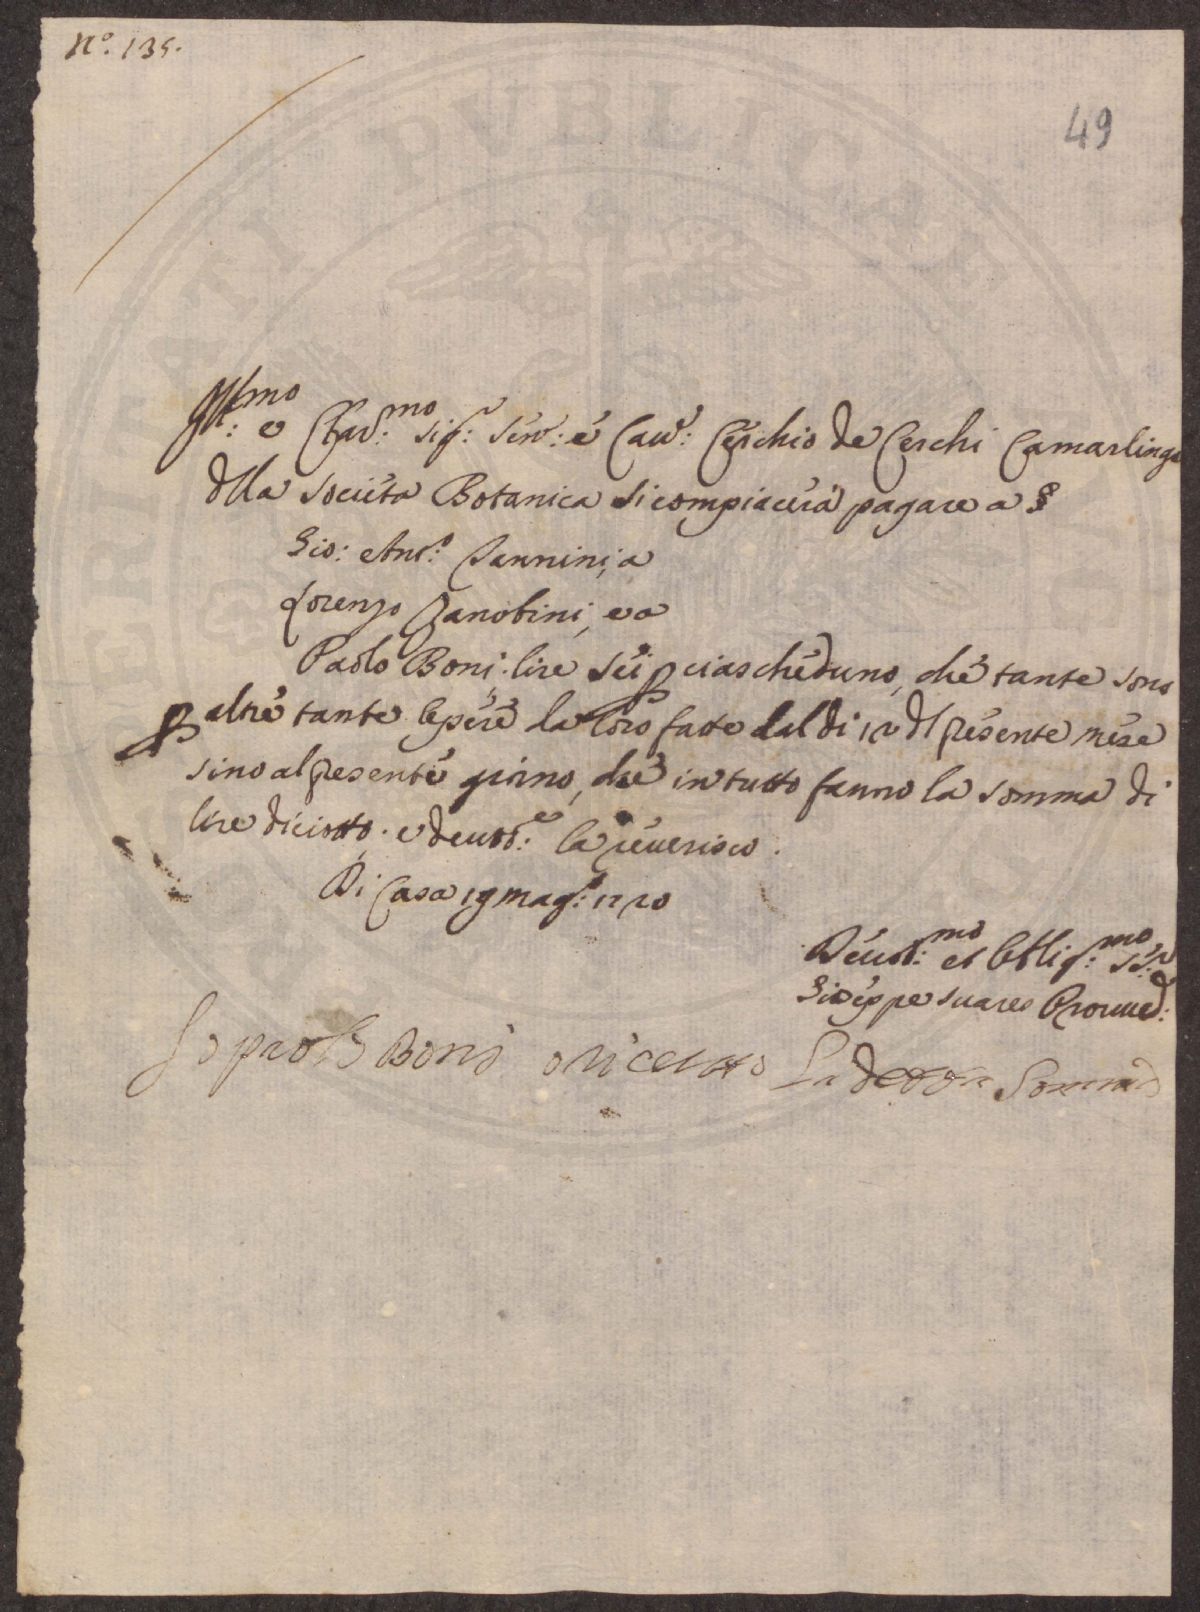 N.º 135.
49
Ill:mo e Char:mo Sig:r Sen: e Cav: Cerchio de Cerchi Camarlingo
dlla Societa Botanica si compiacerà pagare a §
Gio: Ant:o Vannini, a
Lorenzo Zanobini, e a
Paolo Boni lire sei p ciascheduno, che tante sono
p altre tante opere da loro fatte dal di 12 dl presente mese
sino al presente giorno, che in tutto fanno la somma di
lire diciotto. e deuot:e la reuerisco.
Di Casa 19 Mag:o 1720
Deuot:mo et Obblig:mo Se:re
Gioseppe Suares Proued:
Io paolo Boni o riceuto La detta Somma